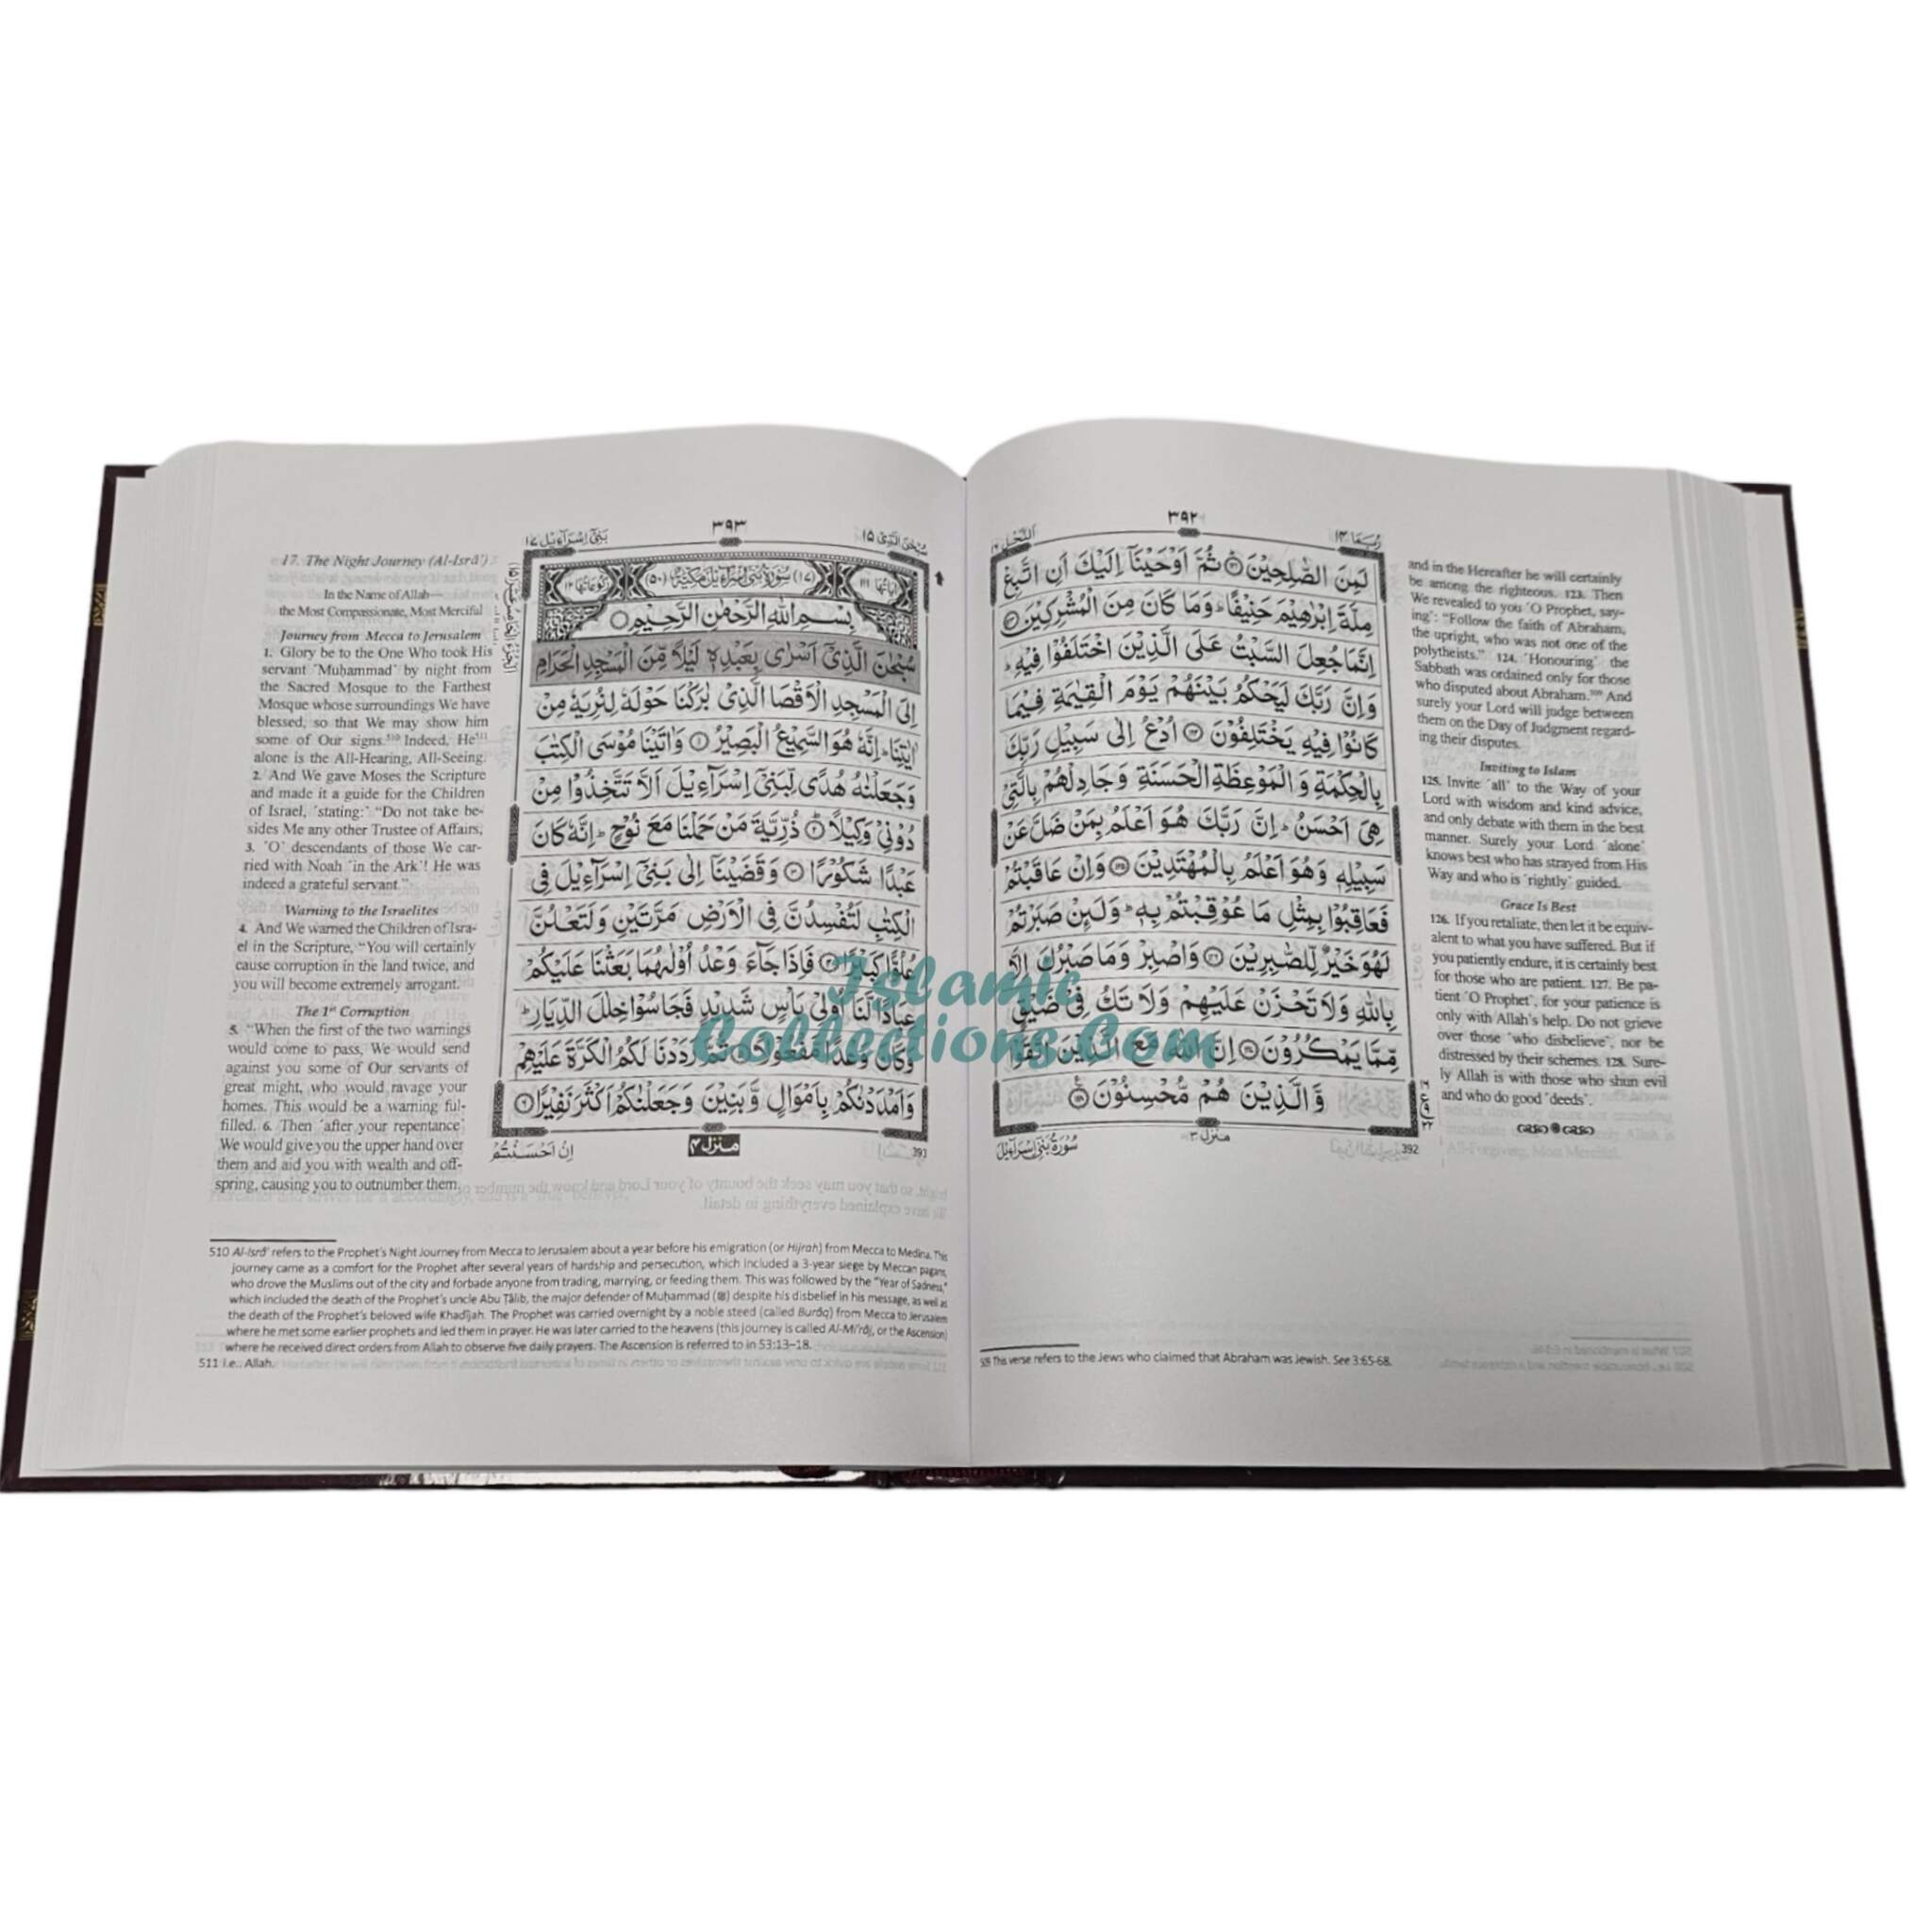 ٣٩٢
رُبَمَا ١٤
اَلنَّحْل ١٦
لَمِنَ الصّٰلِحِيْنَ ۞ ثُمَّ اَوْحَيْنَاۤ اِلَيْكَ اَنِ اتَّبِعْ
مِلَّةَ اِبْرٰهِيْمَ حَنِيْفًا ؕ وَمَا كَانَ مِنَ الْمُشْرِكِيْنَ ۞
اِنَّمَا جُعِلَ السَّبْتُ عَلَى الَّذِيْنَ اخْتَلَفُوْا فِيْهِ ؕ
وَاِنَّ رَبَّكَ لَيَحْكُمُ بَيْنَهُمْ يَوْمَ الْقِيٰمَةِ فِيْمَا
كَانُوْا فِيْهِ يَخْتَلِفُوْنَ ۞ اُدْعُ اِلٰى سَبِيْلِ رَبِّكَ
بِالْحِكْمَةِ وَ الْمَوْعِظَةِ الْحَسَنَةِ وَ جَادِلْهُمْ بِالَّتِيْ
هِيَ اَحْسَنُ ؕ اِنَّ رَبَّكَ هُوَ اَعْلَمُ بِمَنْ ضَلَّ عَنْ
سَبِيْلِهٖ وَ هُوَ اَعْلَمُ بِالْمُهْتَدِيْنَ ۞ وَاِنْ عَاقَبْتُمْ
فَعَاقِبُوْا بِمِثْلِ مَا عُوْقِبْتُمْ بِهٖ ؕ وَلَئِنْ صَبَرْتُمْ
لَهُوَ خَيْرٌ لِّلصّٰبِرِيْنَ ۞ وَاصْبِرْ وَمَا صَبْرُكَ اِلَّا
بِاللّٰهِ وَلَا تَحْزَنْ عَلَيْهِمْ وَلَا تَكُ فِيْ ضَيْقٍ
مِّمَّا يَمْكُرُوْنَ ۞ اِنَّ اللّٰهَ مَعَ الَّذِيْنَ اتَّقَوْا
وَّالَّذِيْنَ هُمْ مُّحْسِنُوْنَ ۞
منزل ٣
سُوْرَةُ بَنِيْ اِسْرَآءِيْل
392
and in the Hereafter he will certainly
be among the righteous. 123. Then
We revealed to you ˹O Prophet, say-
ing˺: “Follow the faith of Abraham,
the upright, who was not one of the
polytheists.” 124. ˹Honouring˺ the
Sabbath was ordained only for those
who disputed about Abraham.509 And
surely your Lord will judge between
them on the Day of Judgment regard-
ing their disputes.
Inviting to Islam
125. Invite ˹all˺ to the Way of your
Lord with wisdom and kind advice,
and only debate with them in the best
manner. Surely your Lord ˹alone˺
knows best who has strayed from His
Way and who is ˹rightly˺ guided.
Grace Is Best
126. If you retaliate, then let it be equiv-
alent to what you have suffered. But if
you patiently endure, it is certainly best
for those who are patient. 127. Be pa-
tient ˹O Prophet˺, for your patience is
only with Allah's help. Do not grieve
over those ˹who disbelieve˺, nor be
distressed by their schemes. 128. Sure-
ly Allah is with those who shun evil
and who do good ˹deeds˺.
509 This verse refers to the Jews who claimed that Abraham was Jewish. See 3:65-68.
٣٩٣
سُبْحٰنَ الَّذِيْ ١٥
بَنِيْٓ اِسْرَآءِيْل ١٧
اٰيَاتُهَا ١١١ (١٧) سُوْرَةُ بَنِيْٓ اِسْرَآءِيْلَ مَكِّيَّةٌ (٥٠) رُكُوْعَاتُهَا ١٢
بِسْمِ اللّٰهِ الرَّحْمٰنِ الرَّحِيْمِ
سُبْحٰنَ الَّذِيْٓ اَسْرٰى بِعَبْدِهٖ لَيْلًا مِّنَ الْمَسْجِدِ الْحَرَامِ
اِلَى الْمَسْجِدِ الْاَقْصَا الَّذِيْ بٰرَكْنَا حَوْلَهٗ لِنُرِيَهٗ مِنْ
اٰيٰتِنَا ؕ اِنَّهٗ هُوَ السَّمِيْعُ الْبَصِيْرُ ۞ وَاٰتَيْنَا مُوْسَى الْكِتٰبَ
وَجَعَلْنٰهُ هُدًى لِّبَنِيْٓ اِسْرَآءِيْلَ اَلَّا تَتَّخِذُوْا مِنْ
دُوْنِيْ وَكِيْلًا ۞ ذُرِّيَّةَ مَنْ حَمَلْنَا مَعَ نُوْحٍ ؕ اِنَّهٗ كَانَ
عَبْدًا شَكُوْرًا ۞ وَقَضَيْنَاۤ اِلٰى بَنِيْٓ اِسْرَآءِيْلَ فِي
الْكِتٰبِ لَتُفْسِدُنَّ فِي الْاَرْضِ مَرَّتَيْنِ وَلَتَعْلُنَّ
عُلُوًّا كَبِيْرًا ۞ فَاِذَا جَآءَ وَعْدُ اُوْلٰىهُمَا بَعَثْنَا عَلَيْكُمْ
عِبَادًا لَّنَاۤ اُولِيْ بَاْسٍ شَدِيْدٍ فَجَاسُوْا خِلٰلَ الدِّيَارِ ؕ
وَكَانَ وَعْدًا مَّفْعُوْلًا ۞ ثُمَّ رَدَدْنَا لَكُمُ الْكَرَّةَ عَلَيْهِمْ
وَاَمْدَدْنٰكُمْ بِاَمْوَالٍ وَّبَنِيْنَ وَجَعَلْنٰكُمْ اَكْثَرَ نَفِيْرًا ۞
منزل ٤
اِنْ اَحْسَنْتُمْ
393
اَلْجُزْءُ الْخَامِسُ عَشَرَ (١٥)
17. The Night Journey (Al-Isrâ')
In the Name of Allah—
the Most Compassionate, Most Merciful
Journey from Mecca to Jerusalem
1. Glory be to the One Who took His
servant ˹Muḥammad˺ by night from
the Sacred Mosque to the Farthest
Mosque whose surroundings We have
blessed, so that We may show him
some of Our signs.510 Indeed, He511
alone is the All-Hearing, All-Seeing.
2. And We gave Moses the Scripture
and made it a guide for the Children
of Israel, ˹stating:˺ “Do not take be-
sides Me any other Trustee of Affairs,
3. ˹O˺ descendants of those We car-
ried with Noah ˹in the Ark˺! He was
indeed a grateful servant.”
Warning to the Israelites
4. And We warned the Children of Isra-
el in the Scripture, “You will certainly
cause corruption in the land twice, and
you will become extremely arrogant.
The 1st Corruption
5. “When the first of the two warnings
would come to pass, We would send
against you some of Our servants of
great might, who would ravage your
homes. This would be a warning ful-
filled. 6. Then ˹after your repentance˺
We would give you the upper hand over
them and aid you with wealth and off-
spring, causing you to outnumber them.
510 Al-Isrâ' refers to the Prophet's Night Journey from Mecca to Jerusalem about a year before his emigration (or Hijrah) from Mecca to Medina. This
journey came as a comfort for the Prophet after several years of hardship and persecution, which included a 3-year siege by Meccan pagans,
who drove the Muslims out of the city and forbade anyone from trading, marrying, or feeding them. This was followed by the “Year of Sadness,”
which included the death of the Prophet's uncle Abu Ṭâlib, the major defender of Muḥammad (ﷺ) despite his disbelief in his message, as well as
the death of the Prophet's beloved wife Khadîjah. The Prophet was carried overnight by a noble steed (called Burâq) from Mecca to Jerusalem
where he met some earlier prophets and led them in prayer. He was later carried to the heavens (this journey is called Al-Mi'râj, or the Ascension)
where he received direct orders from Allah to observe five daily prayers. The Ascension is referred to in 53:13–18.
511 i.e., Allah.
Islamic
Collections.Com